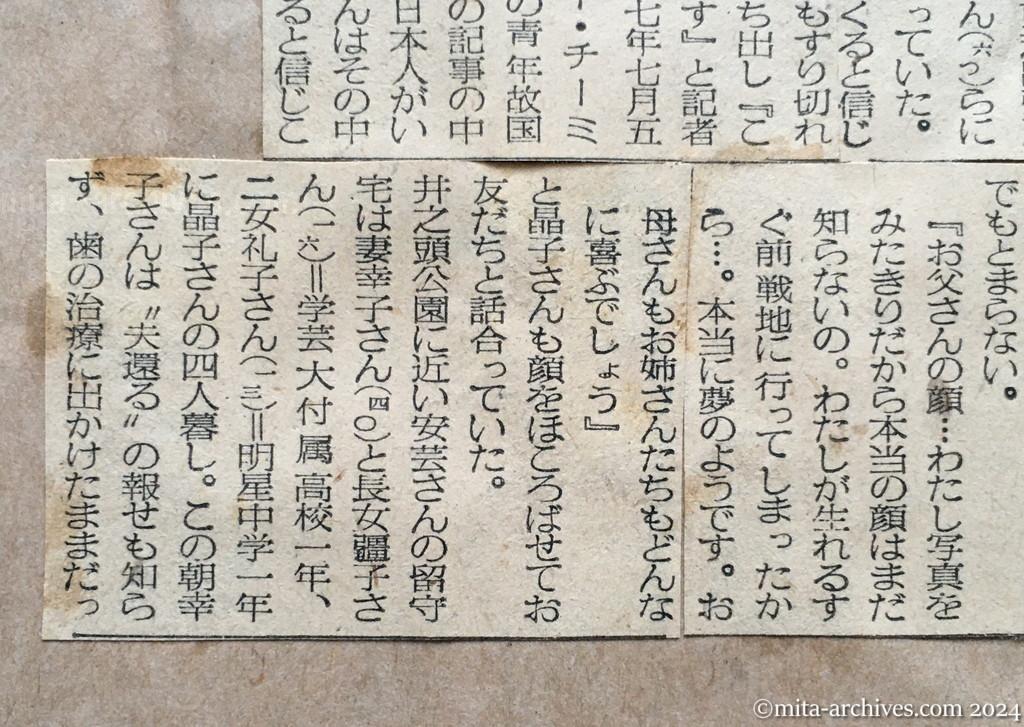 ん(六〇)らに
っていた。
くると信じ
もすり切れ
ち出し『こ
す』と記者
七年七月五
・チーミ
の青年故国
の記事の中
日本人がい
んはその中
ると信じこ
でもとまらない。
『お父さんの顔…わたし写真を
みたきりだから本当の顔はまだ
知らないの。わたしが生れるす
ぐ前戦地に行ってしまったか
ら…。本当に夢のようです。お
母さんもお姉さんたちもどんな
に喜ぶでしょう』
と晶子さんも顔をほころばせてお
友だちと話合っていた。
井之頭公園に近い安芸さんの留守
宅は妻幸子さん(四〇)と長女疆子さ
ん(一六)＝学芸大付属高校一年、
二女礼子さん(一三)＝明星中学一年
に晶子さんの四人暮し。この朝幸
子さんは〝夫還る〟の報せも知ら
ず、歯の治療に出かけたままだっ
©mita-archives.com 2024